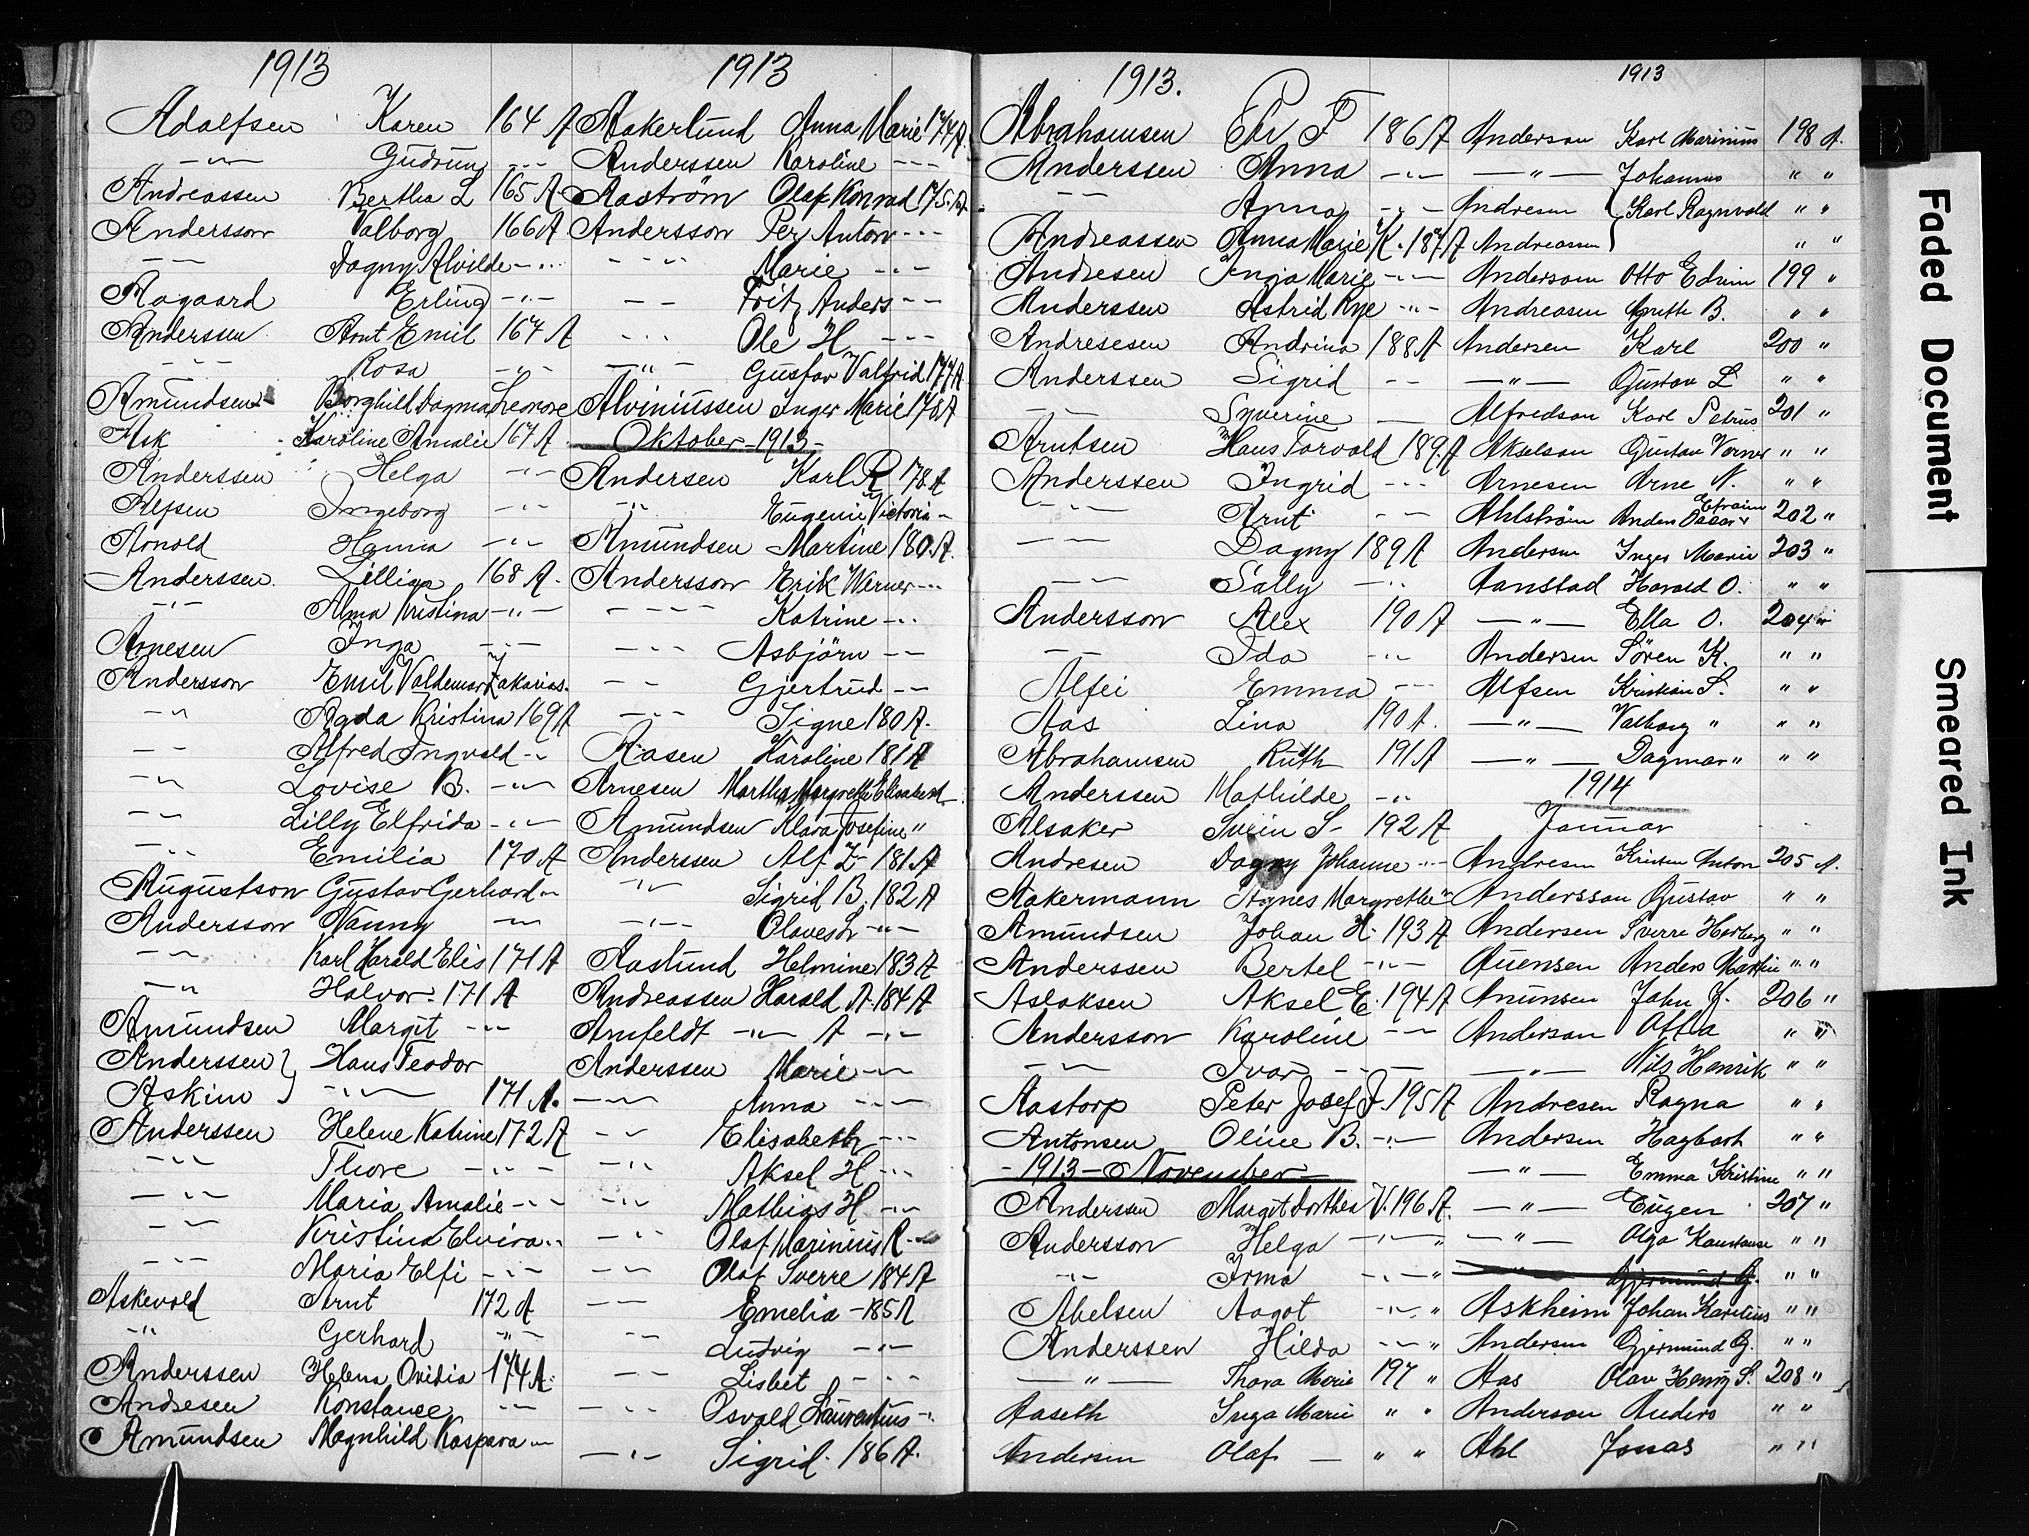 1913
Adolfsen Karen 164 A
-"- Gudrun -"-
Andreassen Bertha L 165 A
Andersson Valborg 166 A
-"- Dagny Alvilde -"-
Aagaard Erling -"-
Anderssen Arnt Emil 167 A
-"- Rosa -"-
Amundsen Borghild Dagmar Leonore
Ask Karoline Amalie 167 A
Anderssen Helga -"-
Alfsen Ingeborg -"-
Arnold Hanna -"-
Anderssen Lillian 168 A.
-"- Alma Kristina -"-
Arnesen Inga -"-
Andersson Emil Valdemar Zakarias -
-"- Agda Kristina 169 A
-"- Alfred Ingvald -"-
-"- Lovise B. -"-
-"- Lilly Elfrida -"-
-"- Emilia 170 A
Augustson Gustav Gerhard -"-
Andersson Nanny -"-
-"- Karl Harald Elis 171 A
-"- Halvor 171 A
Amundsen Margit -"-
Anderssen } Hans Teodor
Askim } -"- 171 A.
Anderssen Helene Katrine 172 A
-"- Thore -"-
-"- Maria Amalie -"-
-"- Kristina Elvira -"-
-"- Maria Elfi -"-
Askevold Arnt 172 A
-"- Gerhard -"-
Anderssen Helena Ovidia 174 A.
Andresen Konstance -"-
Amundsen Magnhild Kaspara -"-
1913
Aakerlund Anna Marie 174 A.
Anderssen Karoline - - -
Aaström Olaf Konrad 175 A
Andersson Per Anton - - -
- - - Marie - - -
- - Fritz Anders - -
- - - Ole H - - -
-"- Gustav Valfrid 177 A
Alviniussen Inger Marie 178 A
Oktober - 1913 -
Andersen Karl R 178 A
-"- Eugenie Victoria -
Amundsen Martine 180 A.
Andersson Erik Werner - - -
- - - - Katrine -"-
- - - Asbjörn - -
- - Gjertrud - -
- - - Signe 180 A.
Aasen Karoline 181 A
Arnesen Martha Margrethe Elisabeth
Amundsen Klara Josefine "
Anderssen Alf Z - 181 A
-"- Sigrid B. 182 A
-"- Olavest -"-
Aaslund Helmine 183 A
Andreassen Harald A. 184 A
Amfeldt -"- A -"-
Anderssen Marie -"-
-"- Anna - - -
-"- Elisabeth - - -
-"- Aksel H - - -
-"- Mathias H -"-
-"- Olaf Marinius R -"-
- - Olaf Sverre 184 A
- - Emelia - 185 A
- - Ludvig -"-
- - Lisbet - - -
- - - Osvald Laurentius -"-
-"- Sigrid. 186 A.
1913.
Abrahamsen Per F 186 A
Anderssen Anna -"-
- - Anna - - -
Andreassen Anna Marie K. 187 A
Andresen Inga Marie - - -
Anderssen Astrid Rye -"-
Andresesen Andrina 188 A
Anderssen Sigrid - -
- - Syverine -
Arntsen Hans Torvald 189 A
Anderssen Ingrid - - -
- - - Arnt - -
- - - Dagny 189 A
- - Sally -"-
Andersson Alex 190 A
- - Ida -"-
Alfei Emma - - -
Aas Lina 190 A.
Abrahamsen Ruth 191 A
Anderssen Mathilde -"-
Alsaker Svein S - 192 A
Andresen Dagny Johanne -"-
Aakermann Agnes Margrethe "
Amundsen Johan H. 193 A
Anderssen Bertel -"-
Aslaksen Aksel E. 194 A
Andersson Karoline - -
-"- Ivar - - -
Aastorp Peter Josef J. 195 A
Antonsen Oline B. -"-
- 1913 - November -
Andersen Margit Dorthea V. 196 A.
Andersson Helga -"- "
-"- Irma -"- "
Abelsen Aagot -"- "
Anderssen Hilda -"- "
-"- Thora Marie 197 "
Aaseth Inga Marie " "
Andersen Olaf - " "
1913
Anderson Karl Marinius 198 A.
-"- Johannes " "
Andresen { Karl Ragnvald " "
Andreassen } " "
Anderson Otto Edvin 199 "
Andreasen Agnethe B. " "
Andersen Karl 200 "
-"- Gustav L " "
Alfredson Karl Petrus 201 "
Akselson Gustav Verner " "
Arnesen Arne N. " "
Ahlström Anders Oscar Efraim 202 "
Andersen Inger Marie 203 "
Aanstad Harald O. " "
-"- Ella O. 204 "
Andersen Sören K. " "
Alfsen Kristian S. " "
-"- Valborg " " "
-"- Dagmar " " "
1914
Januar
Andresen Kristen Anton 205 A.
Andersson Gustav " "
Andersen Sverre Herberg " "
Auensen Anders Martin " "
Anunsen John J. 206 "
Anderson Atfla " "
-"- Nils Henrik " "
Andresen Ragna " "
Andersen Hagbart " "
-"- Emma Kristine " "
-"- Eugen 207 "
-"- Olga Konstanse " "
-"- Gjermund G. " "
Askheim Johan Karelius " "
Andersen Gjermund G. " "
Aas Olav Henry S. 208 "
Anderson Anders " "
Ahl Jonas " "
B
Faded Document
Smeared Ink